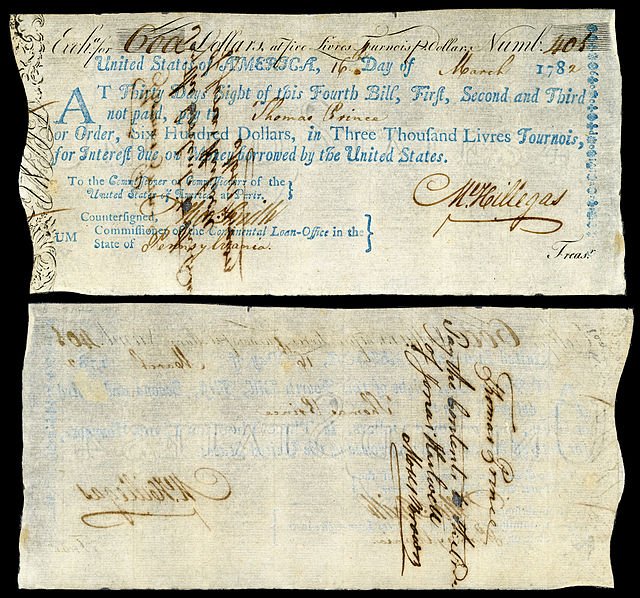 Exchᵃ for 600 Dollars, at five Livres Tournois ℔ Dollar. Numb. 405
United States of AMERICA, 16 Day of March 1782
AT Thirty Days Sight of this Fourth Bill, First, Second and Third
not paid, pay to Thomas Prince
or Order, Six Hundred Dollars, in Three Thousand Livres Tournois,
for Interest due on Money borrowed by the United States.
To the Commissioner or Commissioners of the
United States of America at Paris.
M Hillegas
Countersigned,
Commissioner of the Continental Loan-Office in the
UM
State of Pennsylvania.
Treasʳ
Thomas Prince
Pay the Contents to the Order
of
Moses Brown